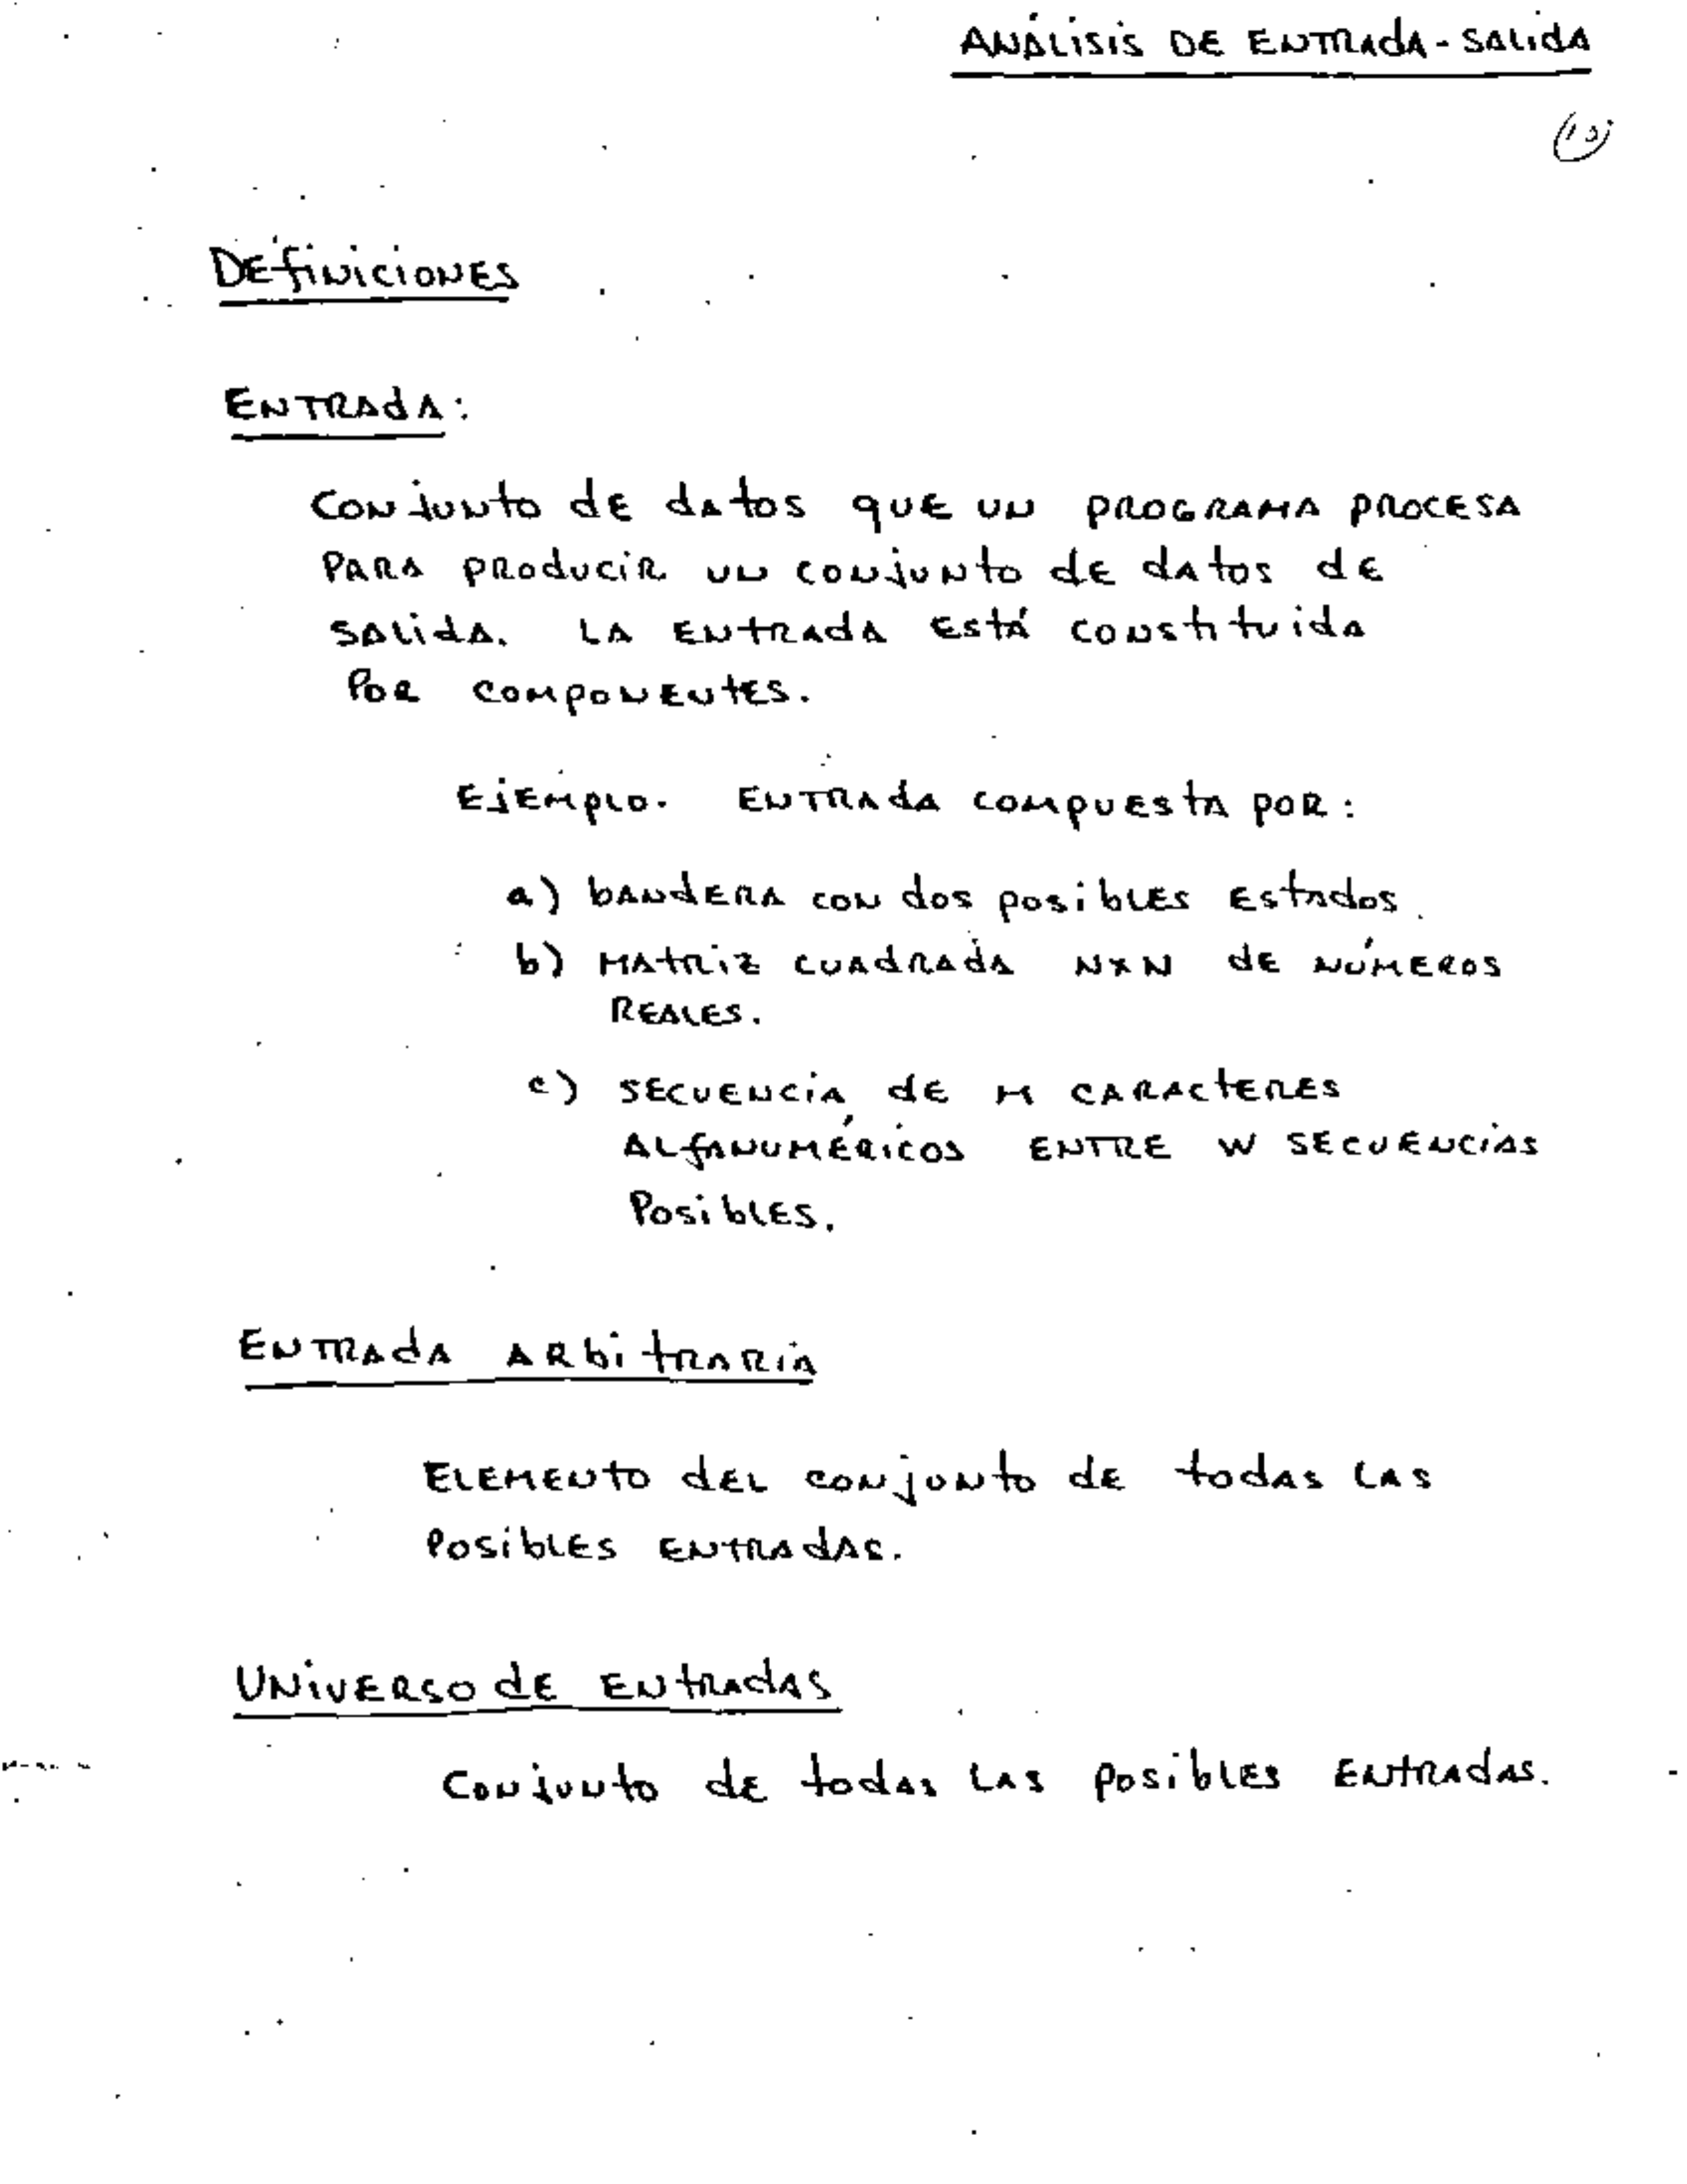 ANÁLISIS DE ENTRADA - SALIDA
Definiciones
ENTRADA:
Conjunto de datos que un programa procesa
para producir un conjunto de datos de
salida. La entrada está constituida
por componentes.
Ejemplo. Entrada compuesta por:
a) bandera con dos posibles estados.
b) Matriz cuadrada NxN de números
reales.
c) secuencia de M caracteres
alfanuméricos entre W secuencias
posibles.
Entrada arbitraria
Elemento del conjunto de todas las
posibles entradas.
Universo de entradas
Conjunto de todas las posibles entradas.